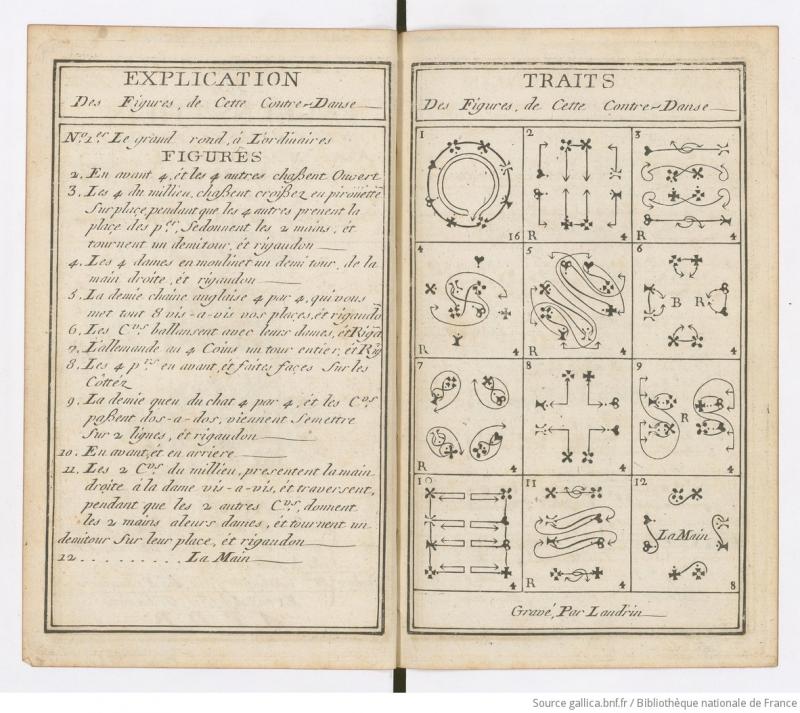 EXPLICATION
Des Figures, de Cette Contre-Danse
No. 1er Le grand rond, à L'ordinaires
FIGURES
2. En avant 4, ét les 4 autres chaßent Ouvert
3. Les 4 du millieu, chaßent croißez en pirouëtté
Sur place pendant que les 4 autres prenent la
place des pers, Se donnent les 2 mains, ét
tournent un demitour, ét rigaudon
4. Les 4 dames en moulinet un demi tour, de la
main droite, ét rigaudon
5. La demie chaine anglaise 4 par 4, qui vous
met tout 8 vis-a-vis vos places, ét rigaudon
6. Les Cers ballansent avec leurs dames, ét Rigd
7. L'allemande au 4 Coins un tour entier, ét Rig
8. Les 4 prs en avant, ét faites faces Sur les
Côttéz
9. La demie queu du chat 4 par 4, ét les Cers
paßent dos-a-dos, viennent Se mettre
Sur 2 lignes, ét rigaudon
10. En avant, ét en arriere
11. Les 2 Cers du millieu, presentent la main
droite à la dame vis-a-vis, ét traversent,
pendant que les 2 autres Cers, donnent
les 2 mains a leurs dames, ét tournent un
demitour Sur leur place, ét rigaudon
12 . . . . . . . . . La Main
TRAITS
Des Figures, de Cette Contre-Danse
1 2 3
16 R 4 R 4
4 5 6
B R
R 4 R 4 4
7 8 9
R
R 4 4 4
10 11 12
La Main
4 R 4 8
Gravé, Par Landrin
Source gallica.bnf.fr / Bibliothèque nationale de France